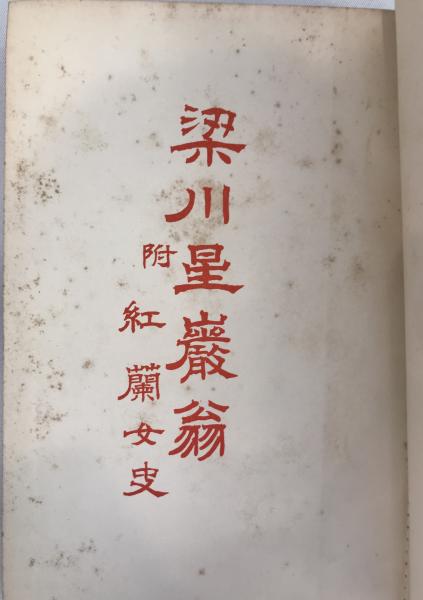 梁川星巖翁
附紅蘭女史